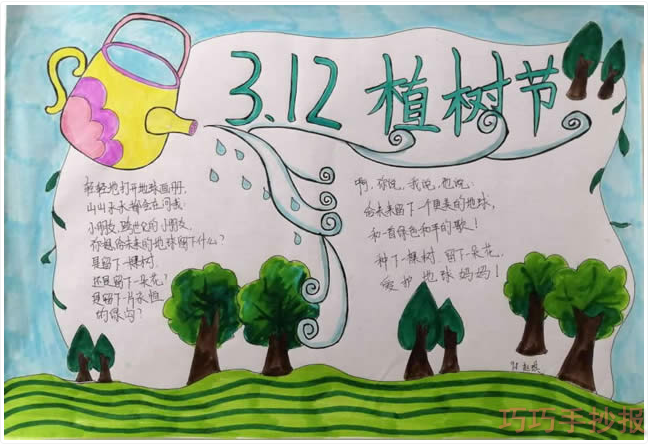 3.12 植树节
轻轻地打开地球画册,
山山水水都在问我:
小朋友,跨世纪的小朋友,
你想给未来的地球留下什么?
是留下一棵树,
还是留下一朵花?
是留下一片永恒
的绿
啊,你说,我说,他说:
给未来留下一个更美的地球,
和一首绿色和平的歌!
种下一棵树,留下一朵花,
爱护地球妈妈!
巧巧手抄报